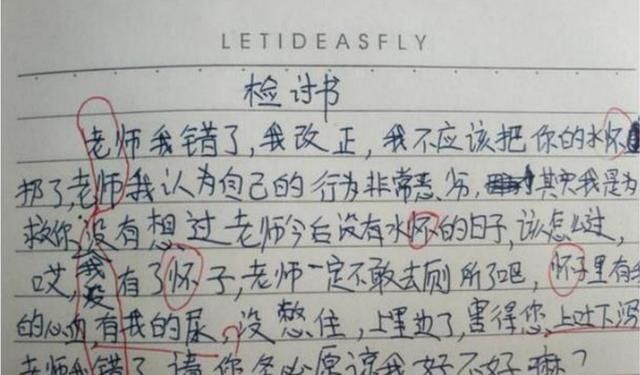 LETIDEASFLY
检讨书
老师我错了,我改正,我不应该把你的水怀
扔了,老师我认为自己的行为非常恶劣,其实我是为
救你,没有想过老师今后没有水怀的日子,该怎么过,
哎,我没有了怀子,老师一定不敢去厕所了吧,怀子里有
的心血,有我的尿,没憋住,上里边了,害得您,上下泻
老师我错了 请你务必原谅我好不好嘛?